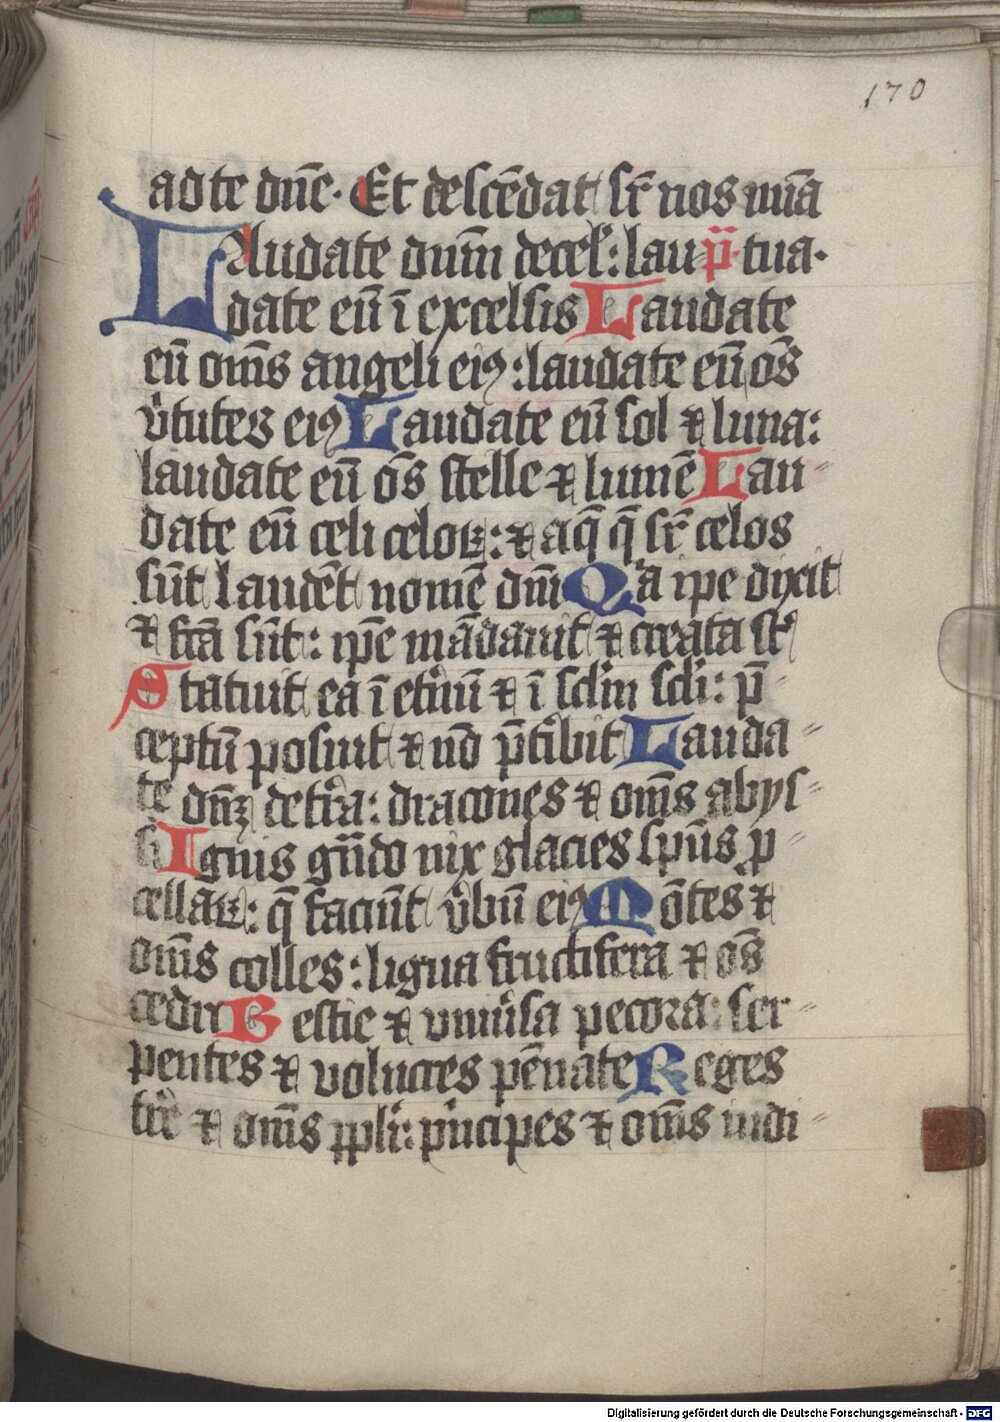 170
ad te dn̄e. Et descēdat sr̄ nos mīa
Laudate dnm̄ de cel̄: lau p̄. tua.
date eū ī excelsis Laudate
eū om̄s angeli eiꝰ: laudate eū oēs
v̓tutes eiꝰ Laudate eū sol ⁊ luna:
laudate eū oēs stelle ⁊ lumē Lau⸗
date eū celi celoꝝ: ⁊ aq̄ q̄ sr̄ celos
sūt laudēt nomē dn̄i Qa ip̄e dixit
⁊ fc̄a sūt: ip̄e mādauit ⁊ creata st̄
Statuit ea ī et̓nū ⁊ ī scl̄m scl̄i: p̄⸗
ceptū posuit ⁊ nō p̄t̓ibit Lauda⸗
te dn̄ꝫ de tr̓a: dracones ⁊ om̄s abys⸗
si Ignis g̓ndo nix glacies sp̄us ꝓ⸗
cellaꝝ: q̄ faciūt v̓bū eiꝰ Mōtes ⁊
om̄s colles: ligna fructifera ⁊ oēs
cedri Bestie ⁊ vniu̓sa pecora: ser⸗
pentes ⁊ volucres pēnate Reges
tr̓e ⁊ om̄s ppl̄i: pͥncipes ⁊ om̄s iudi⸗
Digitalisierung gefördert durch die Deutsche Forschungsgemeinschaft - DFG